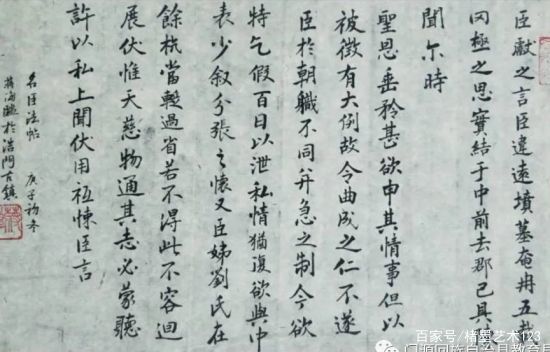 臣献之言臣違遠墳墓奄冉五載
罔極之思實結于中前去郡已具
聞尔時
聖恩垂矜甚欲申其情事但以
被徵有大例故令曲成之仁不遂
臣於朝職不同并急之制今欲
特乞假百日以泄私情猶復欲與中
表少叙分張之懷又臣姊劉氏在
餘杭當蹔過省若不得此不容迴
展伏惟天慈物通其志必蒙聽
許以私上聞伏用祗悚臣言
名臣法帖 庚子初冬
蒋海於浩門古鎮
百家号/楮墨艺术123
门源回族自治县教育局